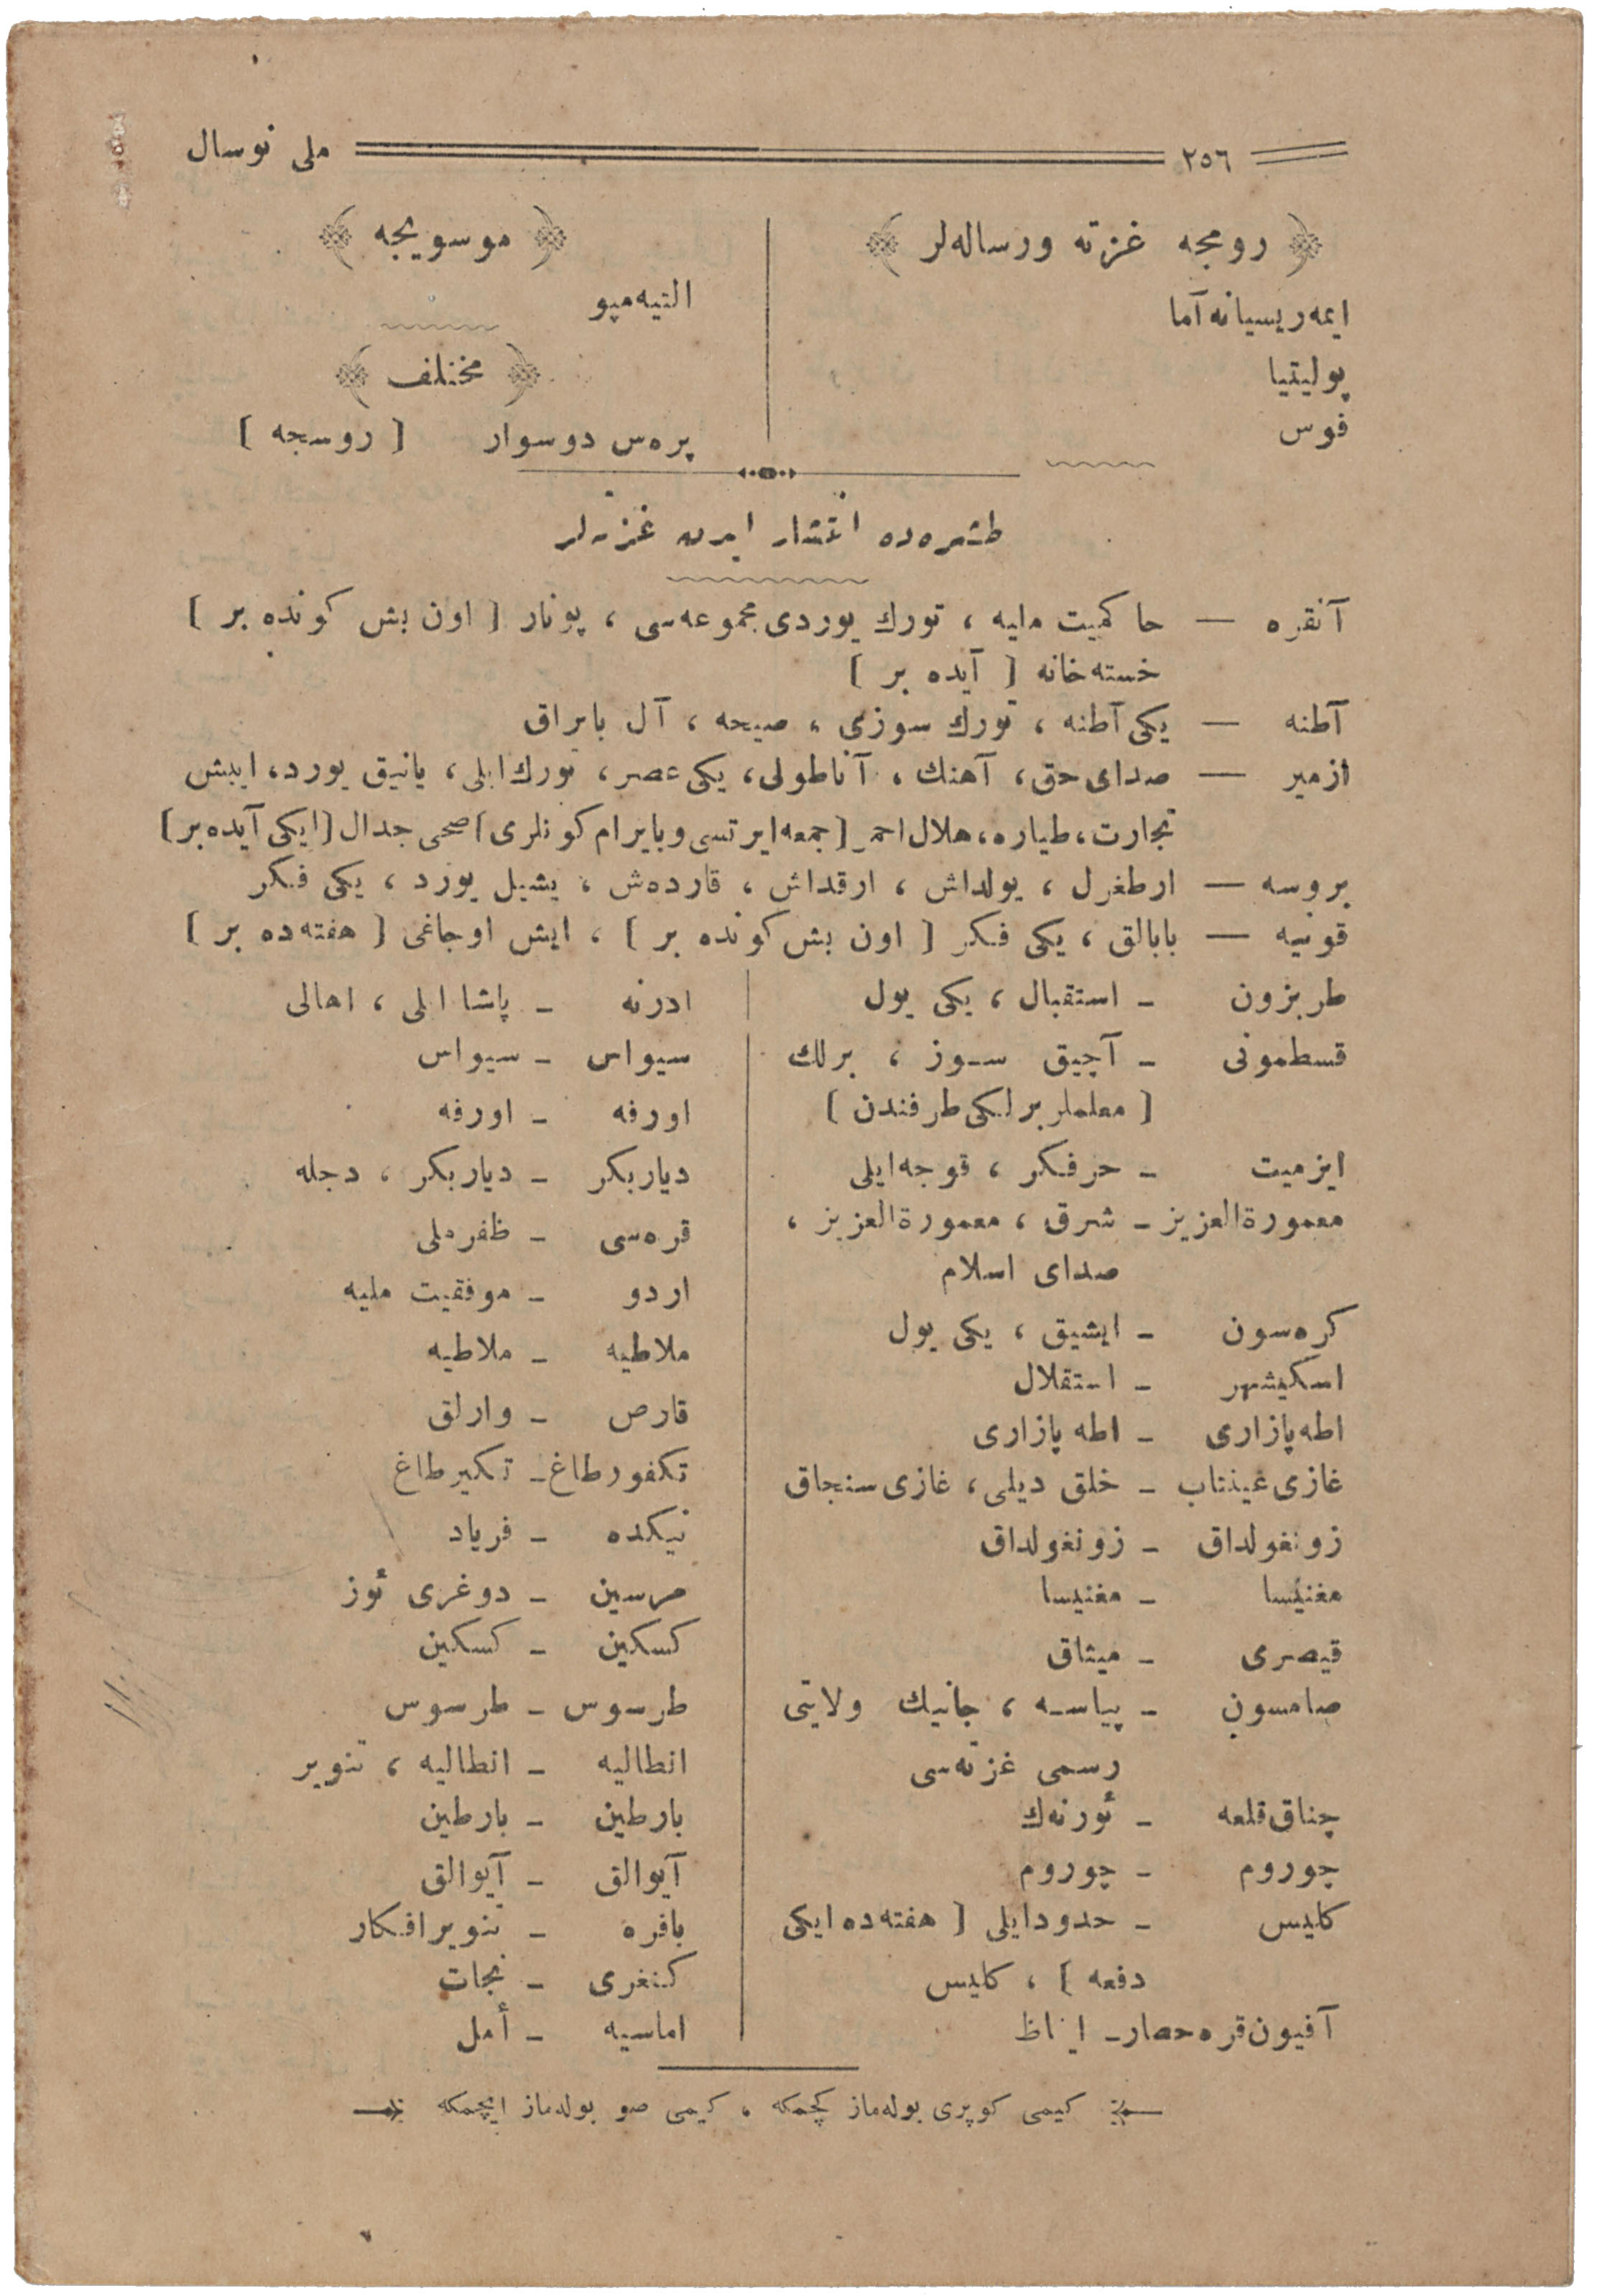 ٢٥٦ ملی نوسال
رومجه غزته ورساله‌لر
ایمه‌ریسیانه‌آما
پولیتیا
فوس
موسویجه
التیه‌مپو
مختلف
پره‌س دوسوار [ روسجه ]
طشره‌ده انتشار ایدن غزته‌لر
آنقره — حاكمیت ملیه ، تورك یوردی مجموعه‌سی ، پونار [ اون بش كونده بر ]
خسته‌خانه [ آیده بر ]
آطنه — یكی آطنه ، تورك سوزی ، صیحه ، آل بایراق
ازمیر — صدای حق ، آهنك ، آناطولی ، یكی عصر ، تورك ایلی ، یانیق یورد ، ایبش
تجارت ، طیاره ، هلال احمر [ جمعه ایرتسی و بایرام كونلری ] صحی جدال [ ایكی آیده بر ]
بروسه — ارطغرل ، یولداش ، ارقداش ، قارده‌ش ، یشیل یورد ، یكی فكر
قونیه — بابالق ، یكی فكر [ اون بش كونده بر ] ، ایش اوجاغی [ هفته‌ده بر ]
طربزون - استقبال ، یكی یول
قسطمونی - آچیق سـوز ، برلك
[ معلملر برلكی طرفندن ]
ایزمیت - حرفكر ، قوجه‌ایلی
معمورة‌العزیز - شرق ، معمورة‌العزیز ،
صدای اسلام
كره‌سون - ایشیق ، یكی یول
اسكیشهر - استقلال
اطه‌پازاری - اطه‌پازاری
غازی عینتاب - خلق دیلی ، غازی سنجاق
زونغولداق - زونغولداق
مغنیسا - مغنیسا
قیصری - میثاق
صامسون - پیاسـه ، جانیك ولایتی
رسمی غزته‌سی
چناق‌قلعه - ئورنه‌ك
چوروم - چوروم
كلیس - حدودایلی [ هفته‌ده ایكی
دفعه ] ، كلیس
آفیون‌قره‌حصار -
ادرنه - پاشا ایلی ، اهالی
سیواس - سیواس
اورفه - اورفه
دیاربكر - دیاربكر ، دجله
قره‌سی - ظفر ملی
اردو - موفقیت ملیه
ملاطیه - ملاطیه
قارص - وارلق
تكفورطاغ - تكیرطاغ
نیكده - فریاد
مرسین - دوغری ئوز
كسكین - كسكین
طرسوس - طرسوس
انطالیه - انطالیه ، تنویر
بارطین - بارطین
آیوالق - آیوالق
بافره - تنویر افكار
كنغری - نجات
اماسیه - أمل
كیمی كوپری بوله‌ماز كچمكه ، كیمی صو بوله‌ماز ایچمكه